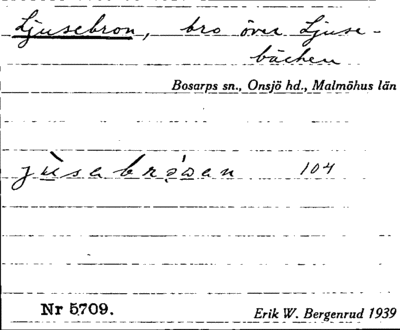 Ljusebron, bro över Ljuse-
bäcken
Bosarps sn., Onsjö hd., Malmöhus län
104
Nr 5709.
Erik W. Bergenrud 1939